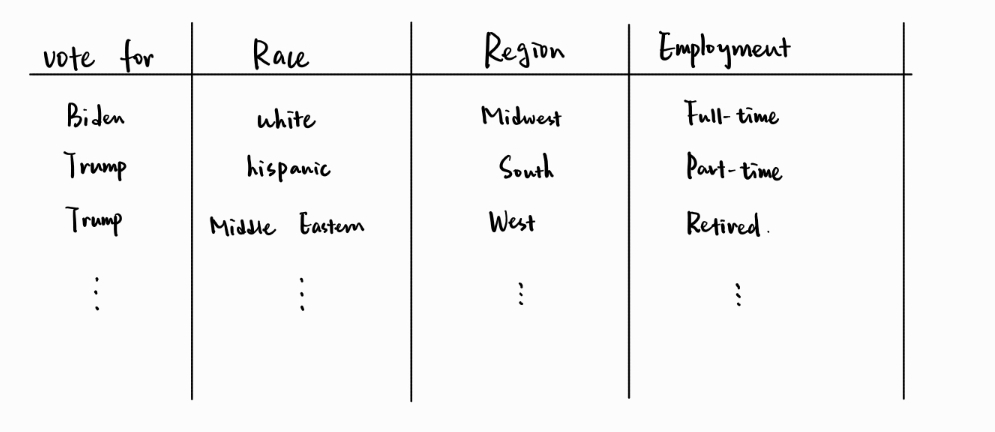 vote for Race Region Employment
Biden white Midwest Full-time
Trump hispanic South Part-time
Trump Middle Eastern West Retired.
⋮ ⋮ ⋮ ⋮